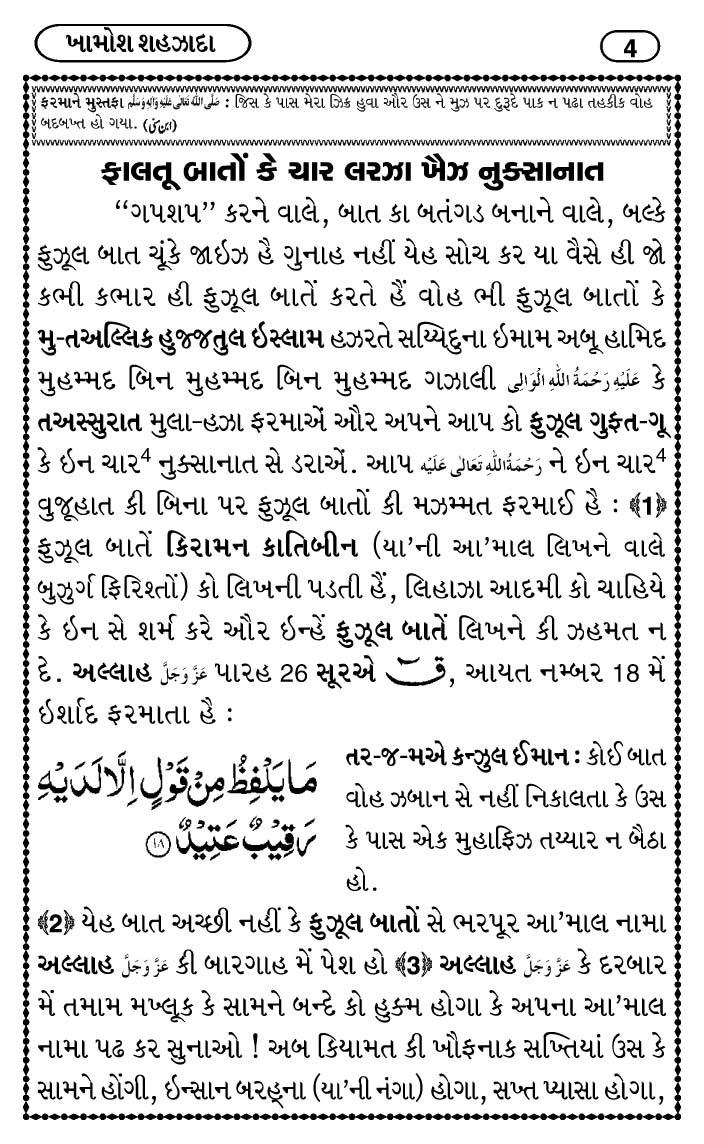 ખામોશ શહઝાદા
4
ફરમાને મુસ્તફા صَلَّى اللهُ تَعَالٰى عَلَيْهِ وَاٰلِهٖ وَسَلَّم : જિસ કે પાસ મેરા ઝિક્ર હુવા ઔર ઉસ ને મુઝ પર દુરૂદે પાક ન પઢા તહકીક વોહ
બદબખ્ત હો ગયા. (ابن سنی)
ફાલતૂ બાતોં કે ચાર લરઝા ખૈઝ નુક્સાનાત
“ગપશપ” કરને વાલે, બાત કા બતંગડ બનાને વાલે, બલ્કે
ફુઝૂલ બાત ચૂંકે જાઇઝ હૈ ગુનાહ નહીં યેહ સોચ કર યા વૈસે હી જો
કભી કભાર હી ફુઝૂલ બાતેં કરતે હૈં વોહ ભી ફુઝૂલ બાતોં કે
મુ-તઅલ્લિક હુજ્જતુલ ઇસ્લામ હઝરતે સય્યિદુના ઇમામ અબૂ હામિદ
મુહમ્મદ બિન મુહમ્મદ બિન મુહમ્મદ ગઝાલી عَلَيْهِ رَحْمَةُ اللهِ الْوَالِى કે
તઅસ્સુરાત મુલા-હઝા ફરમાએં ઔર અપને આપ કો ફુઝૂલ ગુફ્ત-ગૂ
કે ઇન ચાર⁴ નુક્સાનાત સે ડરાએં. આપ رَحْمَةُ اللهِ تَعَالٰى عَلَيْه ને ઇન ચાર⁴
વુજૂહાત કી બિના પર ફુઝૂલ બાતોં કી મઝમ્મત ફરમાઈ હૈ : ﴾1﴿
ફુઝૂલ બાતેં કિરામન કાતિબીન (યા'ની આ'માલ લિખને વાલે
બુઝુર્ગ ફિરિશ્તોં) કો લિખની પડતી હૈં, લિહાઝા આદમી કો ચાહિયે
કે ઇન સે શર્મ કરે ઔર ઇન્હેં ફુઝૂલ બાતેં લિખને કી ઝહમત ન
દે. અલ્લાહ عَزَّوَجَلَّ પારહ 26 સૂરએ قٓ, આયત નમ્બર 18 મેં
ઇર્શાદ ફરમાતા હૈ :
مَا يَلْفِظُ مِنْ قَوْلٍ اِلَّا لَدَيْهِ
رَقِيْبٌ عَتِيْدٌ ﴿١٨﴾
તર-જ-મએ કન્ઝુલ ઈમાન : કોઈ બાત
વોહ ઝબાન સે નહીં નિકાલતા કે ઉસ
કે પાસ એક મુહાફિઝ તય્યાર ન બૈઠા
હો.
﴾2﴿ યેહ બાત અચ્છી નહીં કે ફુઝૂલ બાતોં સે ભરપૂર આ'માલ નામા
અલ્લાહ عَزَّوَجَلَّ કી બારગાહ મેં પેશ હો ﴾3﴿ અલ્લાહ عَزَّوَجَلَّ કે દરબાર
મેં તમામ મખ્લૂક કે સામને બન્દે કો હુક્મ હોગા કે અપના આ'માલ
નામા પઢ કર સુનાઓ ! અબ કિયામત કી ખૌફનાક સખ્તિયાં ઉસ કે
સામને હોંગી, ઇન્સાન બરહ્ના (યા'ની નંગા) હોગા, સખ્ત પ્યાસા હોગા,